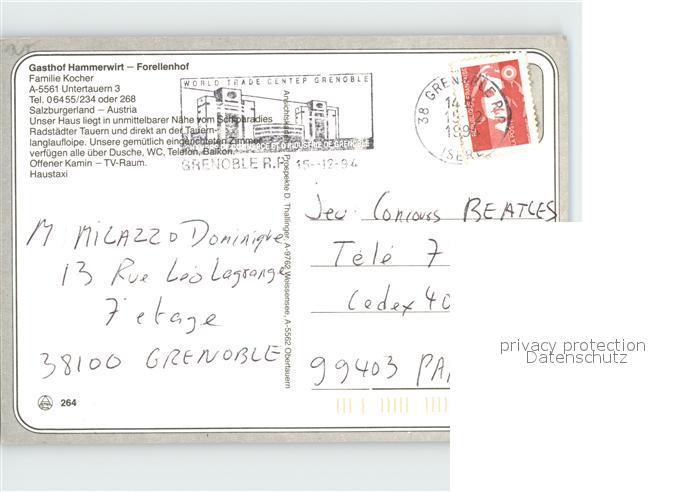 Gasthof Hammerwirt – Forellenhof
Familie Kocher
A-5561 Untertauern 3
Tel. 06455/234 oder 268
Salzburgerland – Austria
Unser Haus liegt in unmittelbarer Nähe vom Schiparadies
Radstädter Tauern und direkt an der Tauern-
langlaufloipe. Unsere gemütlich eingerichteten Zimmer
verfügen alle über Dusche, WC, Telefon, Balkon.
Offener Kamin – TV-Raum.
Haustaxi
WORLD TRADE CENTER GRENOBLE
COMMERCE ET D INDUSTRIE DE GRENOBLE
GRENOBLE R.P. 15-12-94
38 GRENOBLE R.P.
15-12
1994
ISERE
Prospekte D. Thallinger, A-9762 Weissensee, A-5562 Obertauern
M MILAZZO Dominique
13 Rue Léo Lagrange
7e etage
38100 GRENOBLE
Jeu Concours BEATLES
Télé 7
Cedex 40
99403 PA
264
privacy protection
Datenschutz